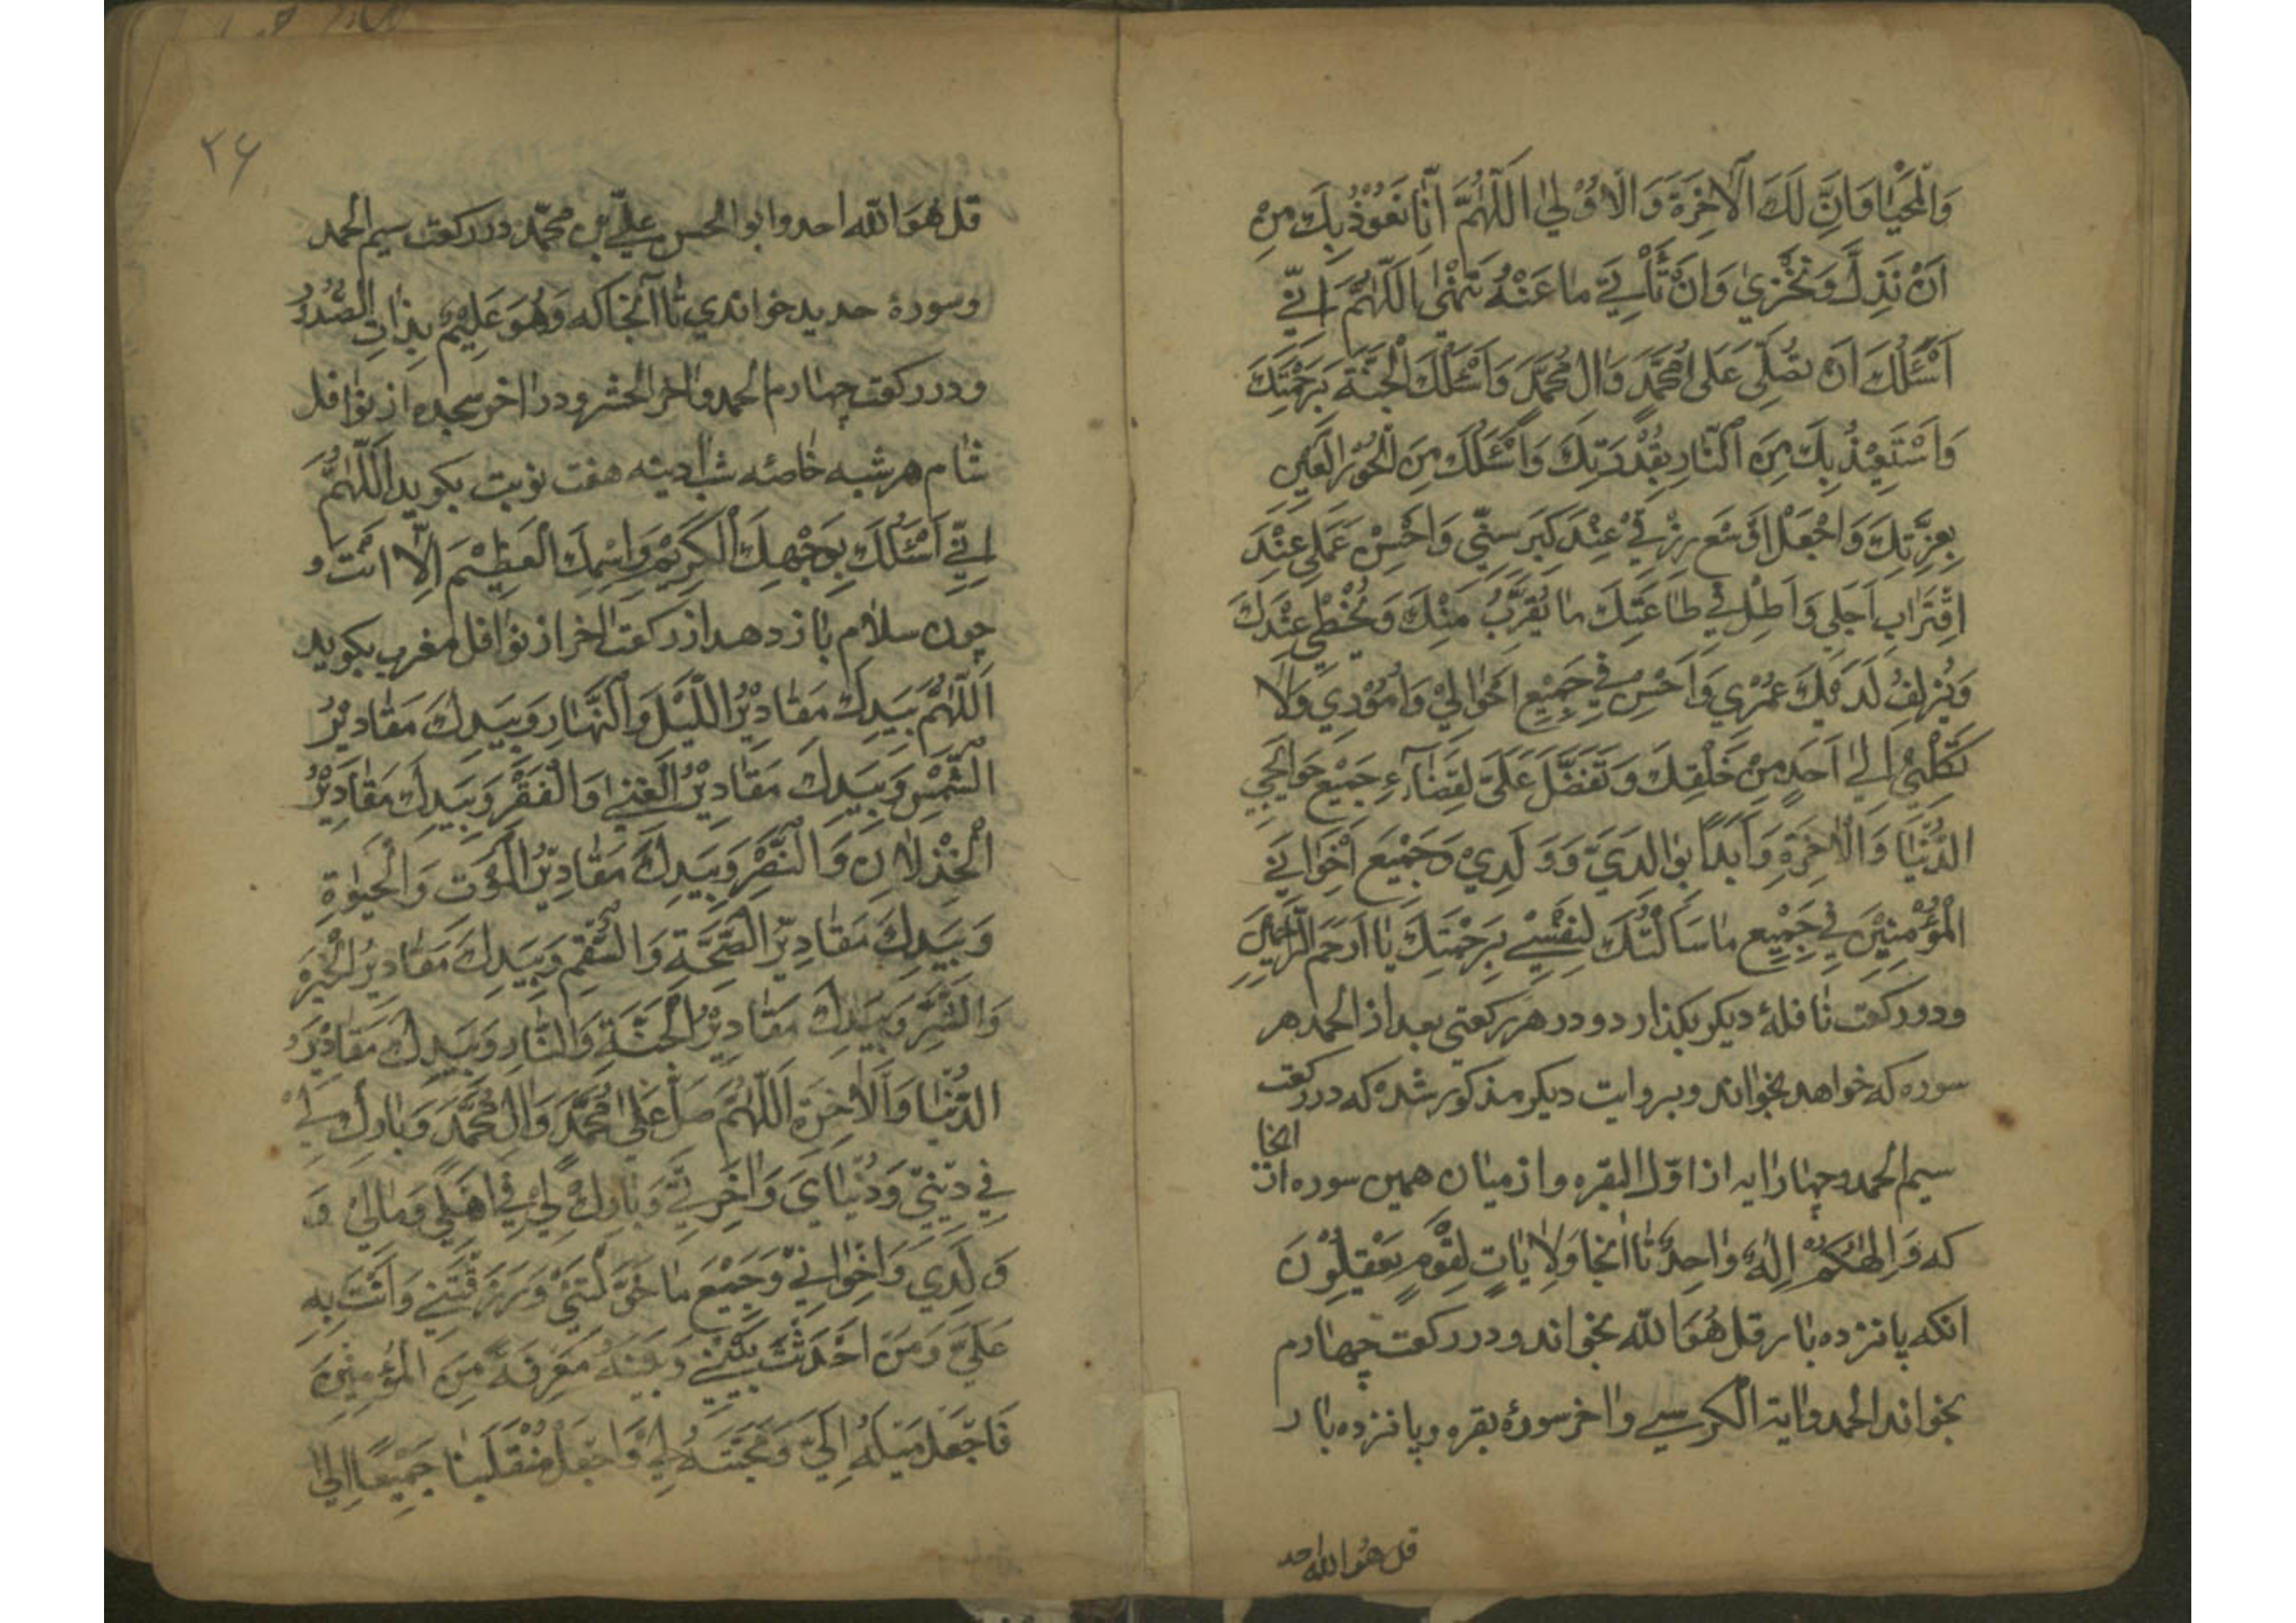 وَالْمَحْيٰا وَاِنَّ لَكَ الْاٰخِرَةَ وَالْاُوْلٰي اَللّٰهُمَّ اِنّٰا نَعُوْذُ بِكَ مِنْ
اَنْ نَذِلَّ وَنَخْزيٰ وَاَنْ نَأْتِيَ مٰا عَنْهُ تَنْهٰي اَللّٰهُمَّ اِنّيٖ
اَسْئَلُكَ اَنْ تُصَلِّيَ عَلٰي مُحَمَّدٍ وَاٰلِ مُحَمَّدٍ وَاَسْئَلُكَ الْجَنَّةَ بِرَحْمَتِكَ
وَاَسْتَعِيْذُ بِكَ مِنَ النّٰارِ بِقُدْرَتِكَ وَاَسْئَلُكَ مِنَ الْحُوْرِ الْعِيْنِ
بِعِزَّتِكَ وَاجْعَلْ اَوْسَعَ رِزْقيٖ عِنْدَ كِبَرِ سِنّيٖ وَاَحْسِنْ عَمَلي عِنْدَ
اقْتِرٰابِ اَجَلي وَاَطِلْ فيٖ طٰاعَتِكَ مٰا يُقَرِّبُ مِنْكَ وَيُحْظٖي عِنْدَكَ
وَيُزْلِفُ لَدَيْكَ عُمْرٖي وَاَحْسِنْ فيٖ جَمِيْعِ اَحْوٰاليٖ وَاُمُوْرٖي وَلٰا
تَكِلْنٖي اِليٰ اَحَدٍ مِنْ خَلْقِكَ وَتَفَضَّلْ عَلَيَّ لِقَضٰآءِ جَمِيْعِ حَوٰائِجي
الدُّنْيٰا وَالْاٰخِرَةِ وَابْدَأْ بِوٰالِدَيَّ وَوَلَدٖي وَجَمِيْعِ اِخْوٰانيٖ
الْمُؤْمِنِيْنَ فيٖ جَمِيْعِ مٰا سَاَلْتُكَ لِنَفْسيٖ بِرَحْمَتِكَ يٰا اَرْحَمَ الرّٰاحِمِيْنَ
ودو ركعت نافلهٔ ديكر بكذارد و در هر ركعتي بعد از الحمد هر
سوره كه خواهد بخواند و بروايت ديكر مذكور شده كه در ركعت
سيم الحمد و چهار ايه از اوّل البقره و از ميان همين سوره از انجا
كه وَاِلٰهُكُمْ اِلٰهٌ وٰاحِدٌ تا انجا وَلَاٰيٰاتٍ لِقَوْمٍ يَعْقِلُوْنَ
انكه پانزده بار قل هُوَ الله بخواند و در ركعت چهارم
بخواند الحمد و اية الكرسي و اخر سورهٔ بقره و پانزده بار
قل هو الله احد
٢۶
قل هُوَ اللّٰه احد و ابو الحسن عليّ بن محمّد در ركعت سيم الحمد
و سورهٔ حديد خواندي تا آنجا كه وَهُوَ عَلِيْمٌ بِذٰاتِ الصُّدُوْرِ
و در ركعت چهارم الحمد و اخر الحشر و در اخر سجده از نوافل
شام هر شبه خاصّه شب ادينه هفت نوبت بكويد اَللّٰهُمَّ
اِنّيٖ اَسْئَلُكَ بِوَجْهِكَ الْكَرِيْمِ وَاسْمِكَ الْعَظِيْمِ اِلّٰا اَنْتَ و
چون سلام باز دهد از ركعت اخر از نوافل مغرب بكويد
اَللّٰهُمَّ بِيَدِكَ مَقٰادِيْرُ اللَّيْلِ وَالنَّهٰارِ وَبِيَدِكَ مَقٰادِيْرُ
الشَّمْسِ وَبِيَدِكَ مَقٰادِيْرُ الْغِنيٰ وَالْفَقْرِ وَبِيَدِكَ مَقٰادِيْرُ
الْخِذْلٰانِ وَالنَّصْرِ وَبِيَدِكَ مَقٰادِيْرُ الْمَوْتِ وَالْحَيٰوةِ
وَبِيَدِكَ مَقٰادِيْرُ الصِّحَّةِ وَالسُّقْمِ وَبِيَدِكَ مَقٰادِيْرُ الْخَيْرِ
وَالشَّرِّ وَبِيَدِكَ مَقٰادِيْرُ الْجَنَّةِ وَالنّٰارِ وَبِيَدِكَ مَقٰادِيْرُ
الدُّنْيٰا وَالْاٰخِرَةِ اَللّٰهُمَّ صَلِّ عَليٰ مُحَمَّدٍ وَاٰلِ مُحَمَّدٍ وَبٰارِكْ ليٖ
فيٖ دِيْنيٖ وَدُنْيٰايَ وَاٰخِرَتيٖ وَبٰارِكْ ليٖ فيٖ اَهْليٖ وَمٰاليٖ وَ
وَلَدٖي وَاِخْوٰانيٖ وَجَمِيْعِ مٰا خَوَّلْتَنيٖ وَرَزَقْتَنيٖ وَاَنْعَمْتَ بِهِ
عَلَيَّ وَمَنْ اَحْدَثْتَ بَيْنيٖ وَبَيْنَهُ مَعْرِفَةً مِنَ الْمُؤْمِنِيْنَ
فَاجْعَلْ مَيْلَهُ اِلَيَّ وَمَحَبَّتَهُ ليٖ وَاجْعَلْ مُنْقَلَبَنٰا جَمِيْعًا اِليٰ